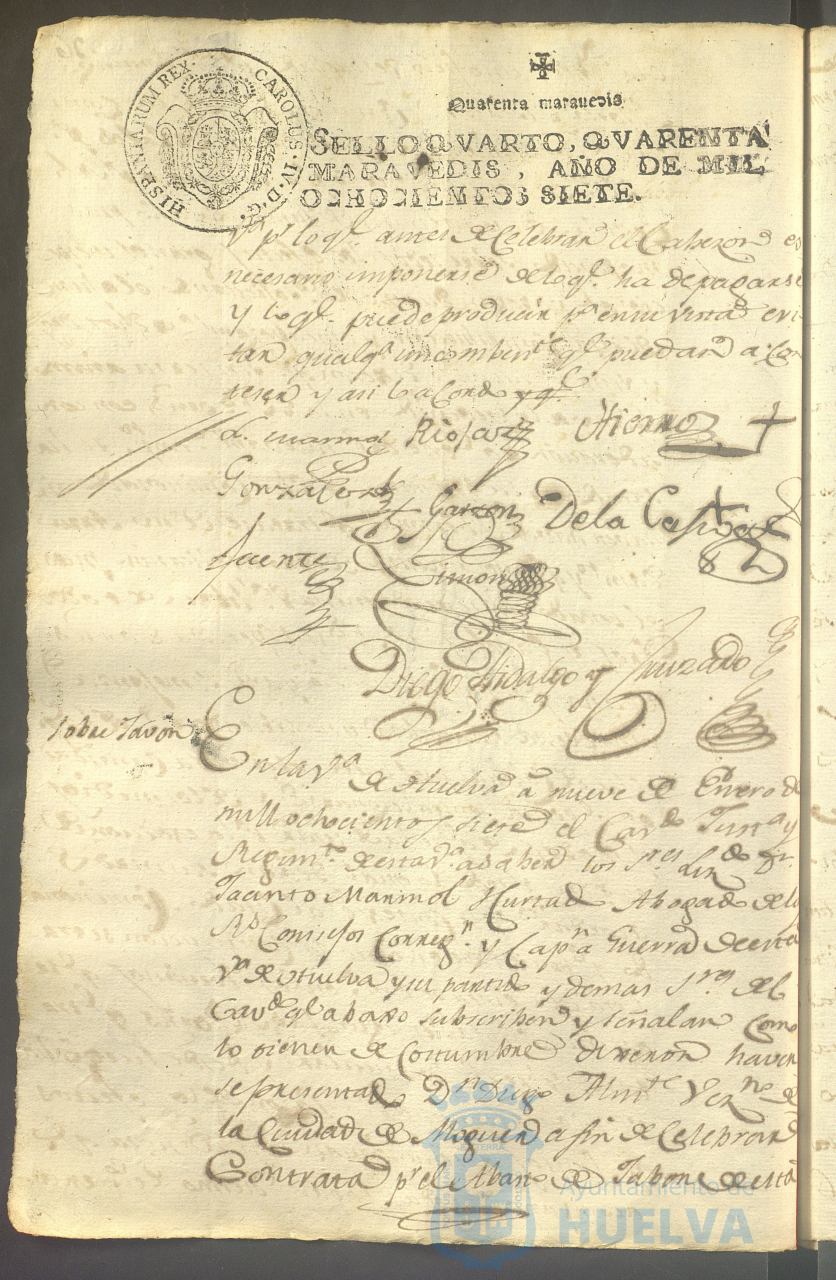 HISPANIARUM REX · CAROLUS · IV · D · G ·
Quarenta maravedis
SELLO QVARTO, QVARENTA
MARAVEDIS, AÑO DE MIL
OCHOCIENTOS SIETE.
pr lo qe antes de Celebrar el Cabezon es
necesario imponerse de lo qe ha de pagarse
y lo qe puede producir pa en su vista evi
tar qualqa incombente qe puedan acon
teser y asi lo acordo
Rioja Hierro
Gonzales Garzon De la Corte
fuente Limon
Diego Hidalgo y Cruzado
Sobre Javon
En la Va de Huelva a nueve de Enero de
mill ochocientos siete el Cavdo Justa y
Regimto de esta Va a saber los Sres Lizdo Dn
Jacinto Marmol Hurtado Abogado de los
Rs Consejos Corregr y Capn a Guerra de esta
Va de Huelva y su partido y demas Sres del
Cavdo qe abaxo subscriben y señalan como
lo tienen de Costumbre dixeron haver
se presentado Dn Diego Vezno de
la Ciudad de Moguer a fin de Celebrar
Contrata pr el Abasto de Jabon de esta
Ayuntamiento de
HUELVA